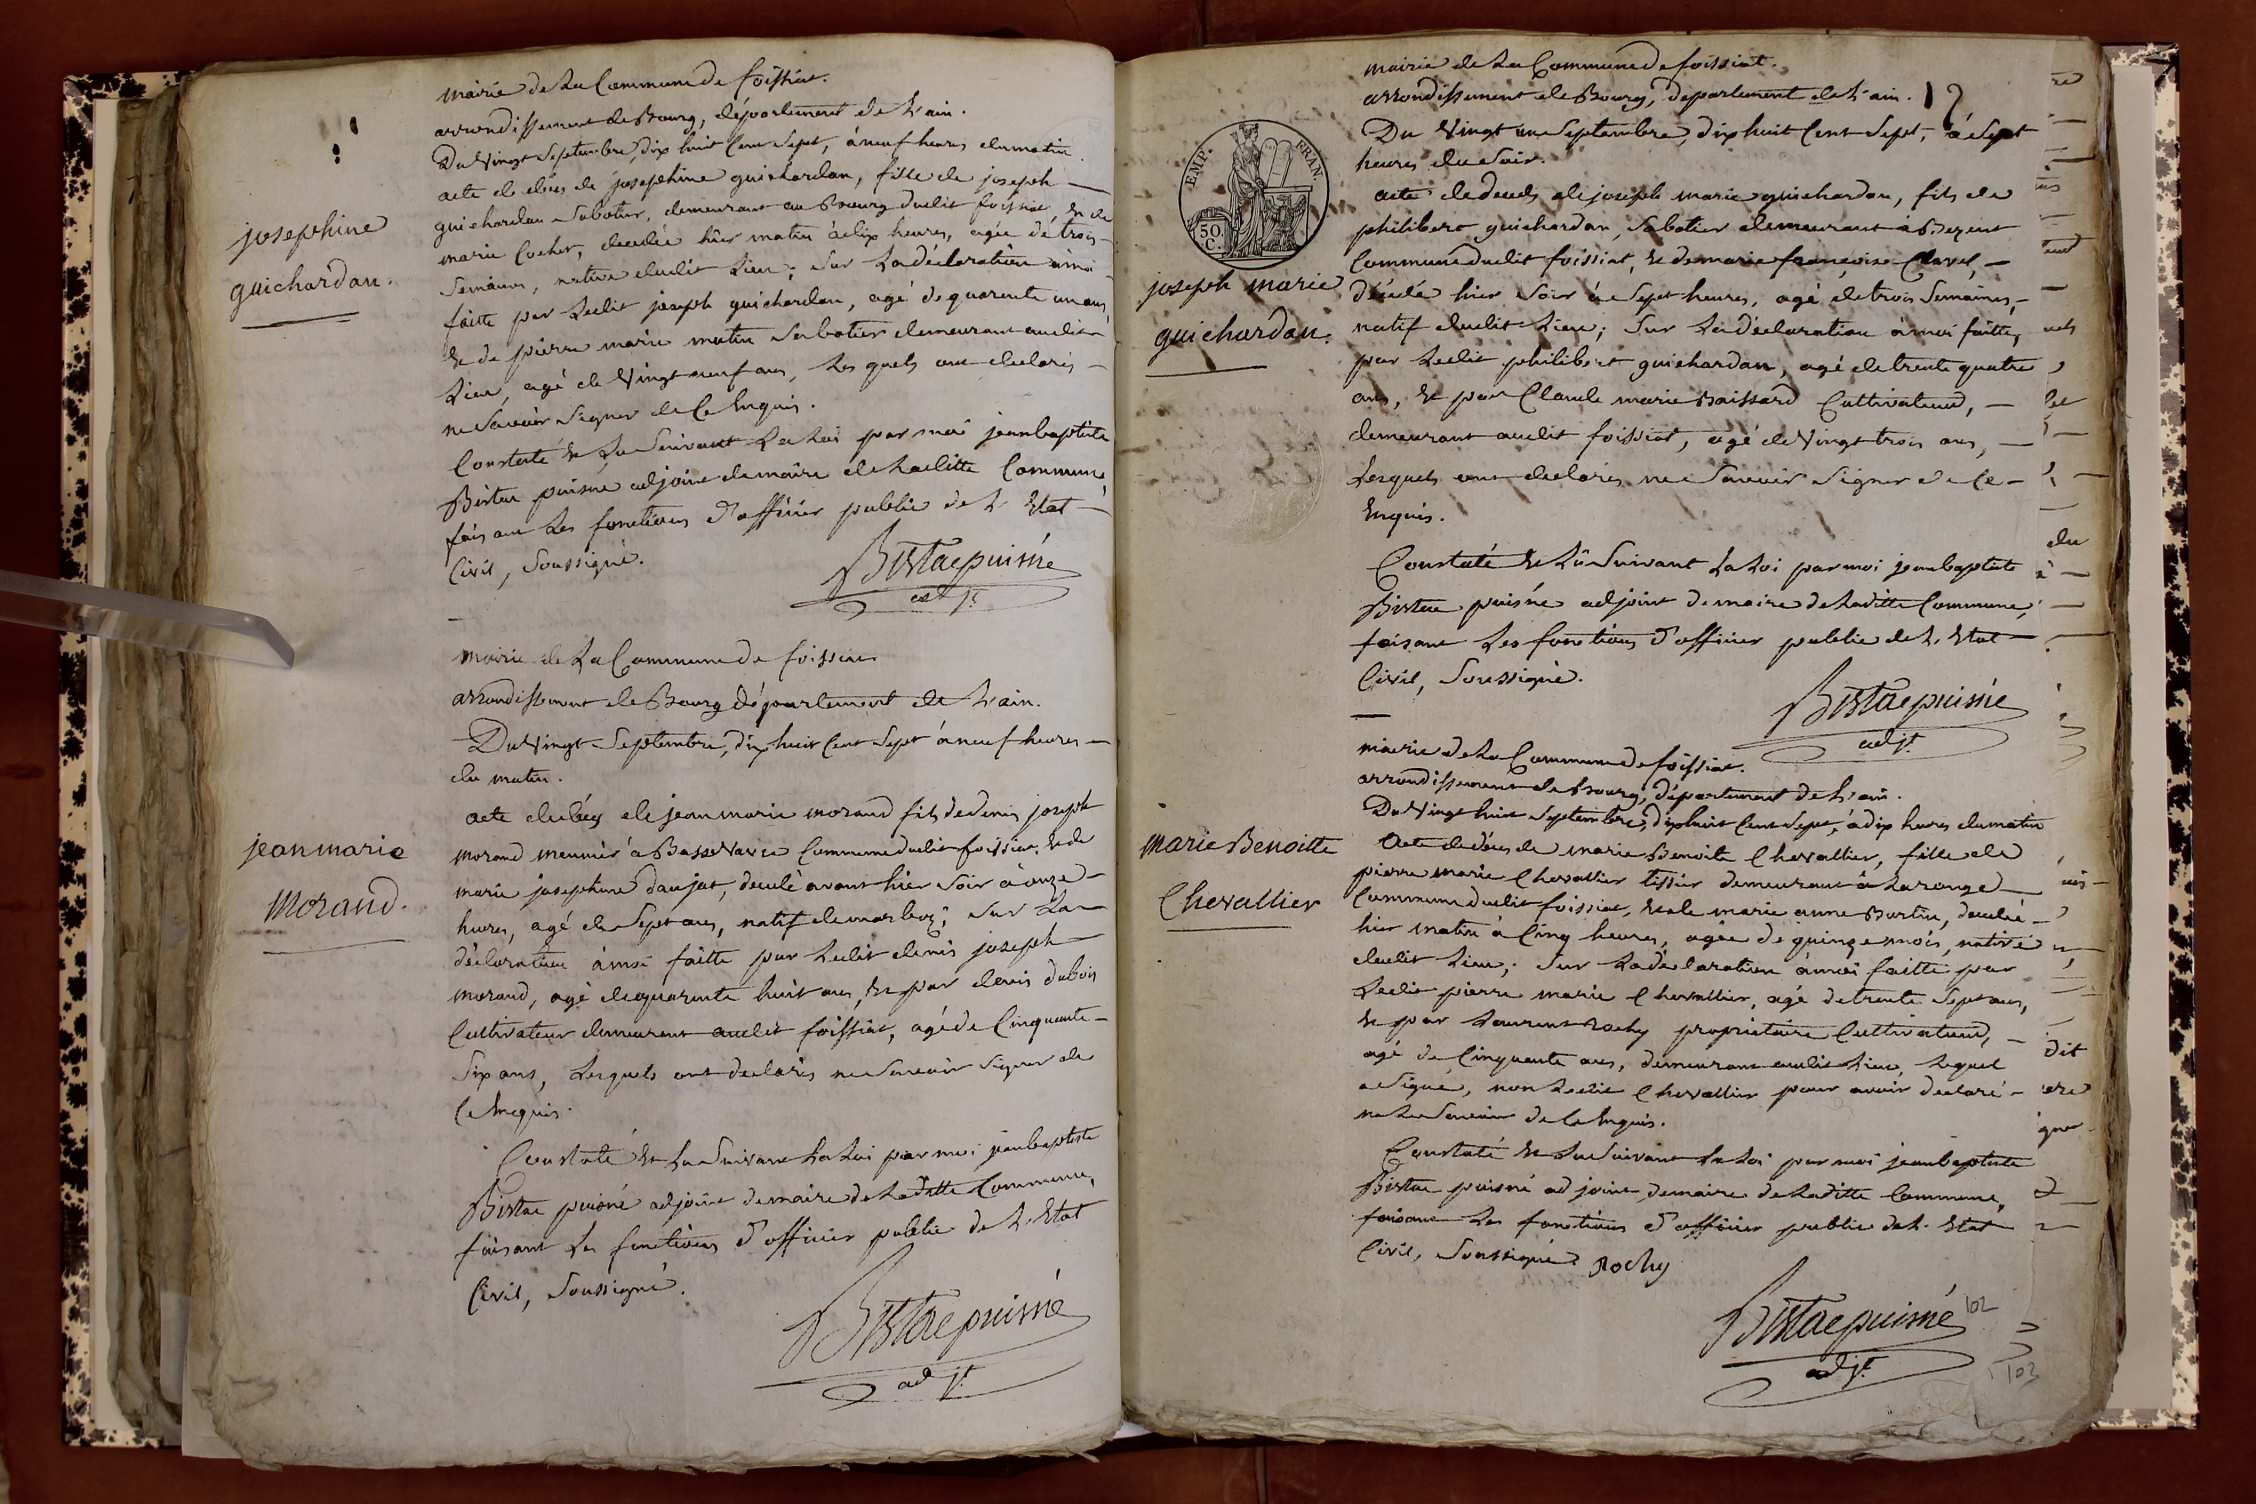 mairie de La Commune de foissiat.
arrondissement de Bourg, département de L'ain.
Du Vingt Septembre, dix huit Cent Sept, à neuf heures du matin.
acte de décès de josephine guichardan, fille de joseph
guichardan Sabotier, demeurant au Bourg dudit foissiat, & de
marie Cochet, decedée hier matin à dix heures, agée de trois
Semaines, native dudit Lieu; Sur La déclaration à moi
faitte par Ledit joseph guichardan, agé de quarente un ans,
& de pierre marie matin Sabotier demeurant audit
Lieu, agé de Vingt neuf ans, Les quels ont declarés
ne Savoir Signer de Ce Enquis.
Constaté & Lu Suivant La Loi par moi jean baptiste
Bistac puisne adjoint de maire de Laditte Commune,
faisant Les fonctions d'officier public de L'Etat
Civil, Soussigné.
Bistac puisné
adjt
josephine
guichardan.
mairie de La Commune de foissiat
arrondissement de Bourg département de L'ain.
Du Vingt Septembre, dix huit Cent Sept à neuf heures
du matin.
acte de décès de jean marie morand fils de denis joseph
morand meunier à Commune dudit foissiat, & de
marie josephine daujat, decedé avant hier Soir à onze
heures, agé de Sept ans, natif de marboz; Sur La
déclaration à moi faitte par Ledit denis joseph
morand, agé de quarente huit ans, & par denis dubois
Cultivateur demeurant audit foissiat, agé de Cinquante
Six ans, Lesquels ont declarés ne Savoir Signer de
Ce Enquis.
Constaté & Lu Suivant La Loi par moi jean baptiste
Bistac puisné adjoint de maire de Laditte Commune,
faisant Les fonctions d'officier public de L'Etat
Civil, Soussigné.
Bistac puisné
adjt
jean marie
Morand.
mairie de La Commune de foissiat.
arrondissement de Bourg, département de L'ain.
Du Vingt un Septembre, dix huit Cent Sept, à Sept
heures du Soir.
acte de deces de joseph marie guichardan, fils de
philibert guichardan, Sabotier demeurant à
Commune dudit foissiat, & de marie françoise Clavel,
décédé hier Soir à Sept heures, agé de trois Semaines,
natif dudit Lieu; Sur La déclaration à moi faitte,
par Ledit philibert guichardan, agé de trente quatre
ans, & par Claude marie Boissard Cultivateur,
demeurant audit foissiat, agé de Vingt trois ans,
Lesquels ont declarés ne Savoir Signer de Ce
Enquis.
Constaté & Lu Suivant La Loi par moi jean baptiste
Bistac puisné adjoint de maire de Laditte Commune,
faisant Les fonctions d'officier public de L'Etat
Civil, Soussigné.
Bistac puisné
adjt
EMP. FRAN.
50
C.
joseph marie
guichardan.
mairie de La Commune de foissiat.
arrondissement de Bourg, département de L'ain.
Du Vingt huit Septembre, dix huit Cent Sept, à dix heures du matin
Acte de décès de marie Benoite Chevallier, fille de
pierre marie Chevallier tissier demeurant à Laronge
Commune dudit foissiat, & de marie anne Bertin, decedée
hier matin à Cinq heures, agée de quinze mois, native
dudit Lieu; Sur La déclaration à moi faitte par
Ledit pierre marie Chevallier, agé de trente Sept ans,
& par Laurent rochy proprietaire Cultivateur,
agé de Cinquante ans, demeurant audit Lieu, Lequel
a Signé, non Ledit Chevallier pour avoir declaré
ne Le Savoir de Ce Enquis.
Constaté & Lu Suivant La Loi par moi jean baptiste
Bistac puisné adjoint de maire de Laditte Commune,
faisant Les fonctions d'officier public de L'Etat
Civil, Soussigné. Rochy
Bistac puisné
adjt
102
103
Marie Benoitte
Chevallier